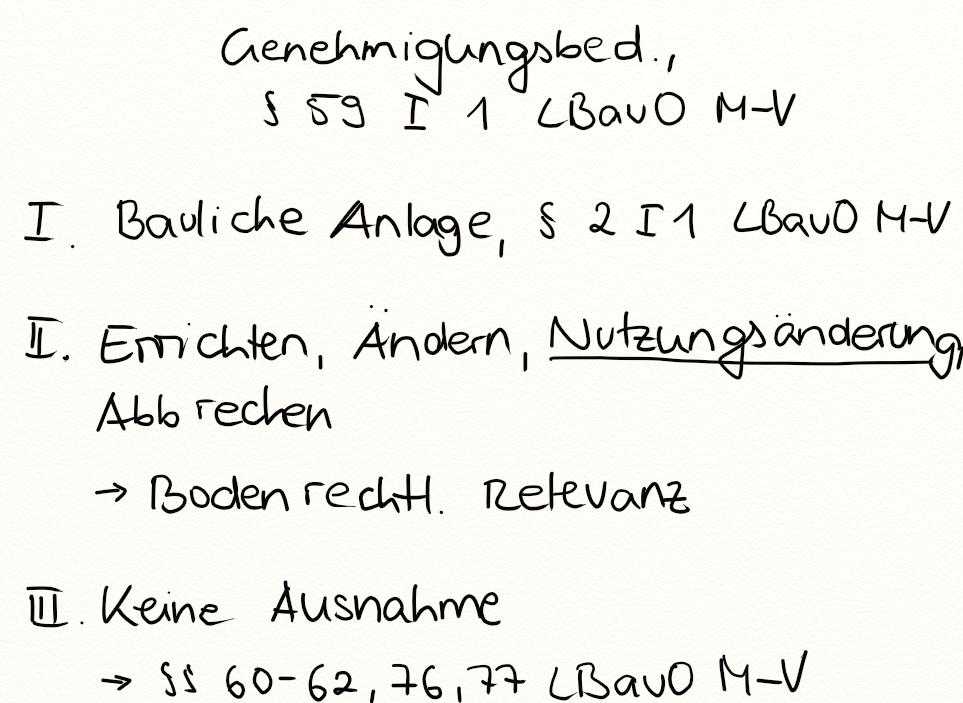 Genehmigungsbed.,
§ 59 I 1 LBauO M-V
I. Bauliche Anlage, § 2 I 1 LBauO M-V
II. Errichten, Ändern, Nutzungsänderung,
Abbrechen
→ Bodenrechtl. Relevanz
III. Keine Ausnahme
→ §§ 60-62, 76, 77 LBauO M-V